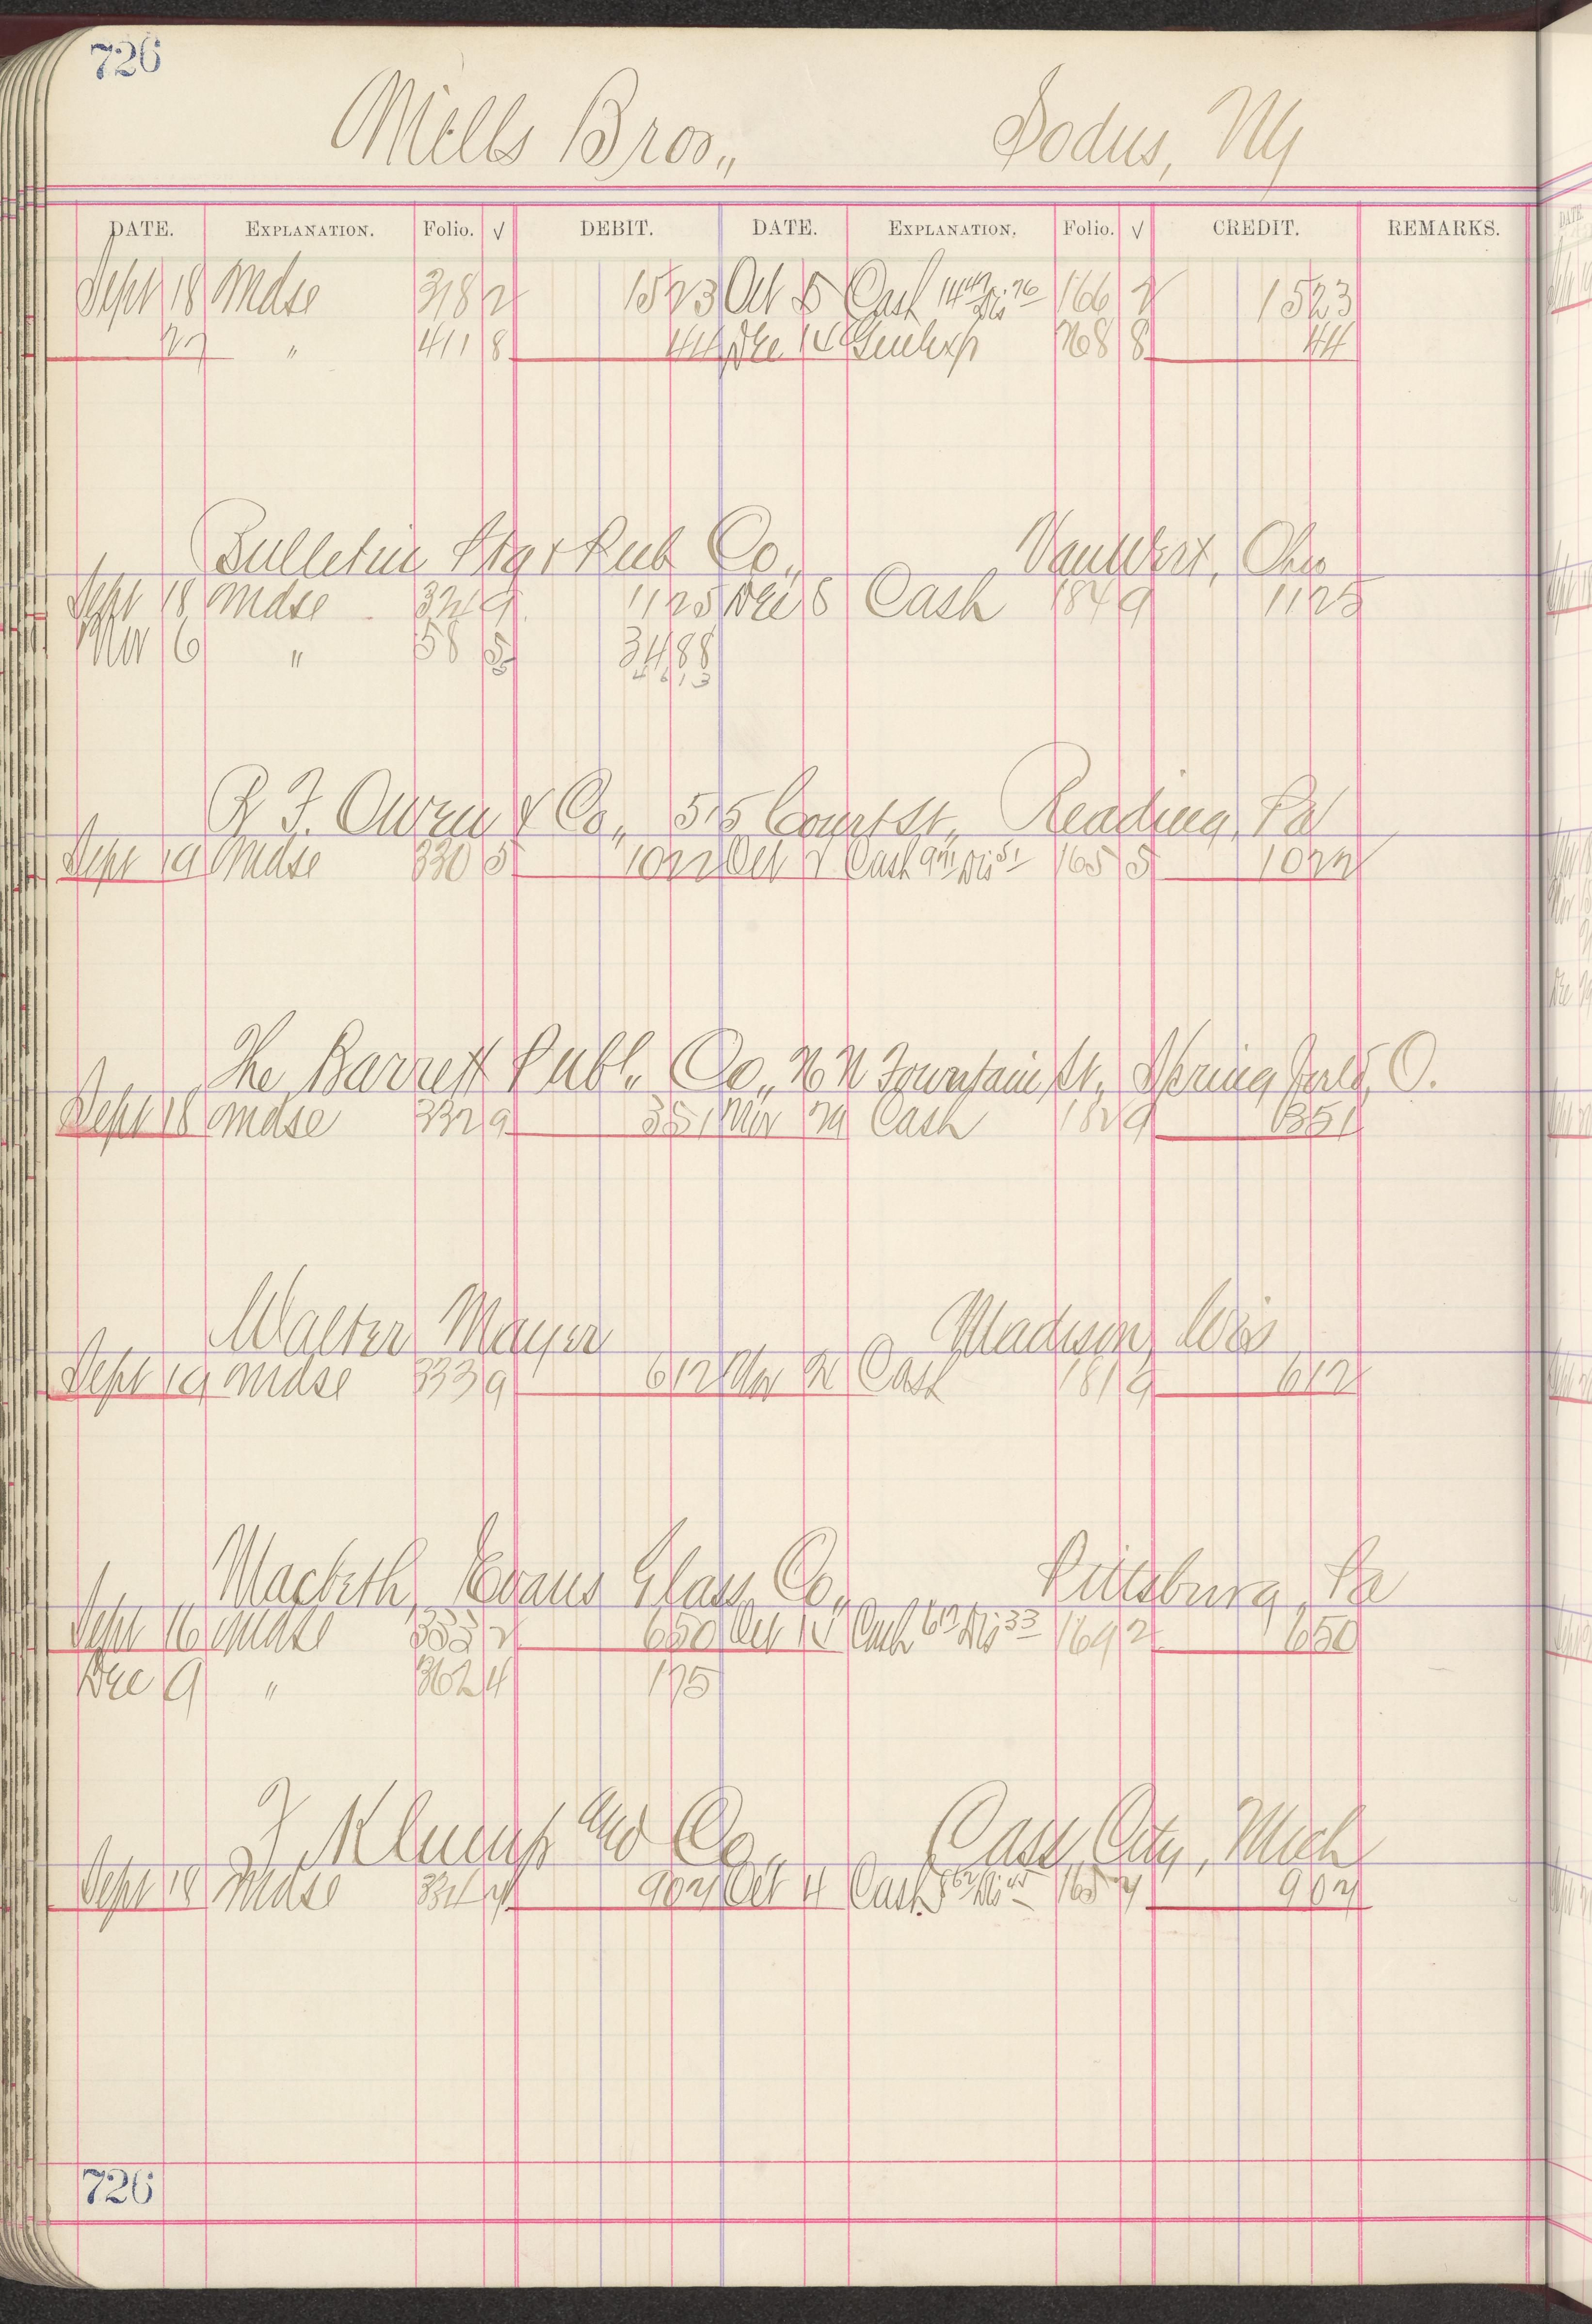 726
Mills Bros,, Sodus, Ny
DATE. EXPLANATION. Folio. √ DEBIT. DATE. EXPLANATION. Folio. √ CREDIT. REMARKS.
Sept 18 Mdse 318 2 1523 Oct 5 Cash 1447 Dis 76 166 2 1523
27 " 411 8 44 Dec 14 Genl Exp 268 8 44
Bulletin Star Pub Co,, Van Wert, Ohio
Sept 18 Mdse 324 9 1125 Dec 8 Cash 184 9 1125
Nov 6 " 58 5 3488
4613
R F. Owen & Co,, 515 Court St,, Reading, Pa
Sept 19 Mdse 330 5 1022 Oct 2 Cash 971 Dis 51 165 5 1022
The Barrett Publ,, Co,, N Fountain St, Springfield, O.
Sept 18 Mdse 332 9 351 Nov 29 Cash 182 9 351
Walter Mayer Madison, Wis
Sept 19 Mdse 333 9 612 Nov Cash 181 9 612
Macbeth, Evans Glass Co,, Pittsburg, Pa
Sept 16 Mdse 333 2 650 Oct 15 Cash 617 Dis 33 169 2 650
Dec 9 " 362 4 175
F Klump and Co,, Cass City, Mich
Sept 18 Mdse 334 4 902 Oct 4 Cash 857 Dis 45 165 902
726